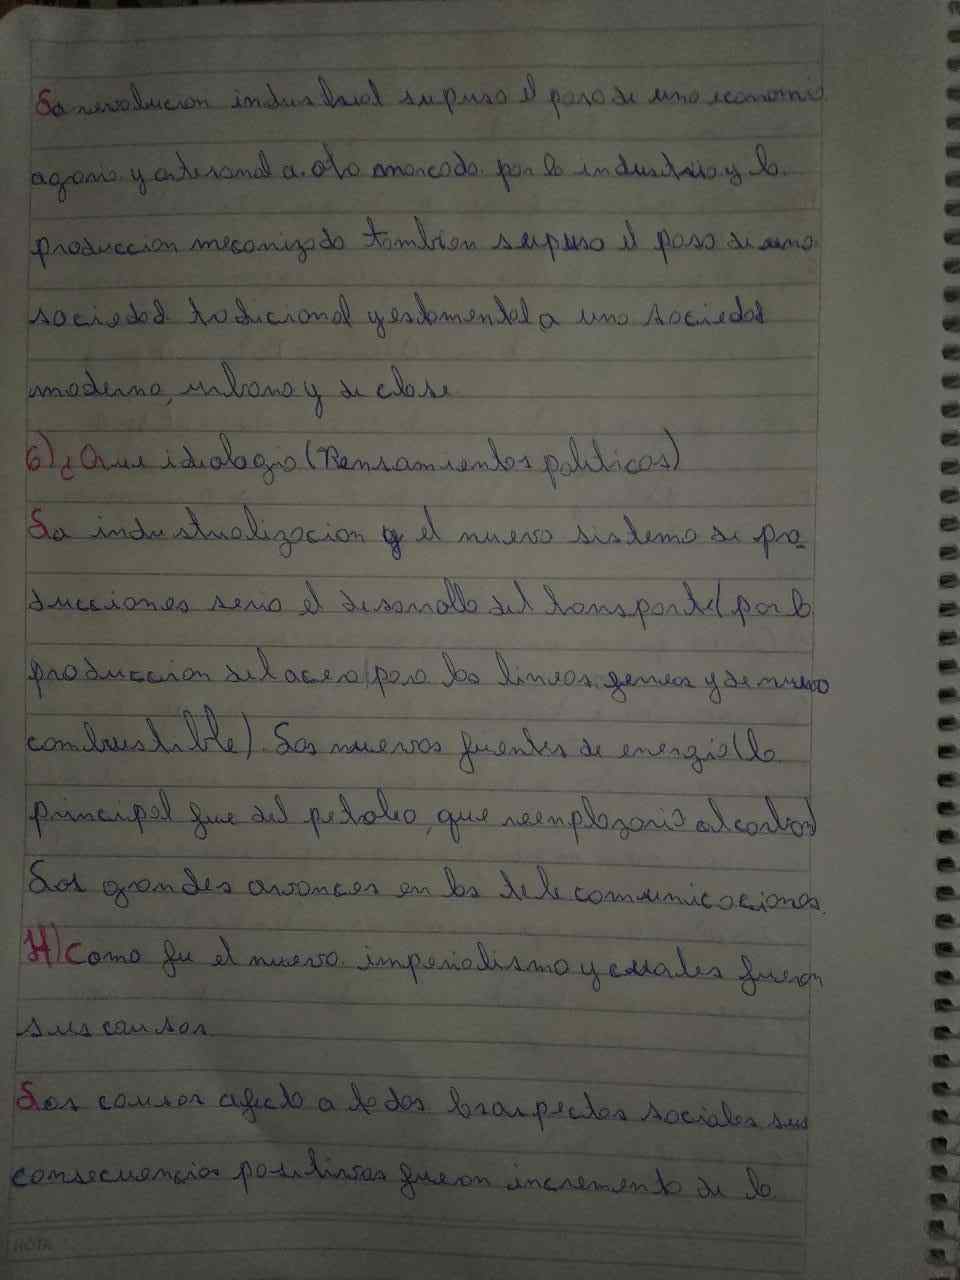 La revolucion industrial supuso el paso de una economia
agraria y artesanal a otra marcada por la industria y la
produccion mecanizada tambien supuso el paso de una
sociedad tradicional y estamental a una sociedad
moderna, urbana y de clase
G) ¿Que ideologia (Pensamientos politicos)
La industrializacion y el nuevo sistema de pro-
ducciones seria el desarrollo del transporte (por la
produccion del acero para las lineas ferrea y de nuevo
combustible). Las nuevas fuentes de energia (la
principal fue del petroleo, que reemplazaria al carbon)
Los grandes avances en las telecomunicaciones.
H) Como fu el nuevo imperialismo y cuales fueron
sus causas
Las causas afecto a todos los aspectos sociales sus
consecuencias positivas fueron incremento de la
NOTA